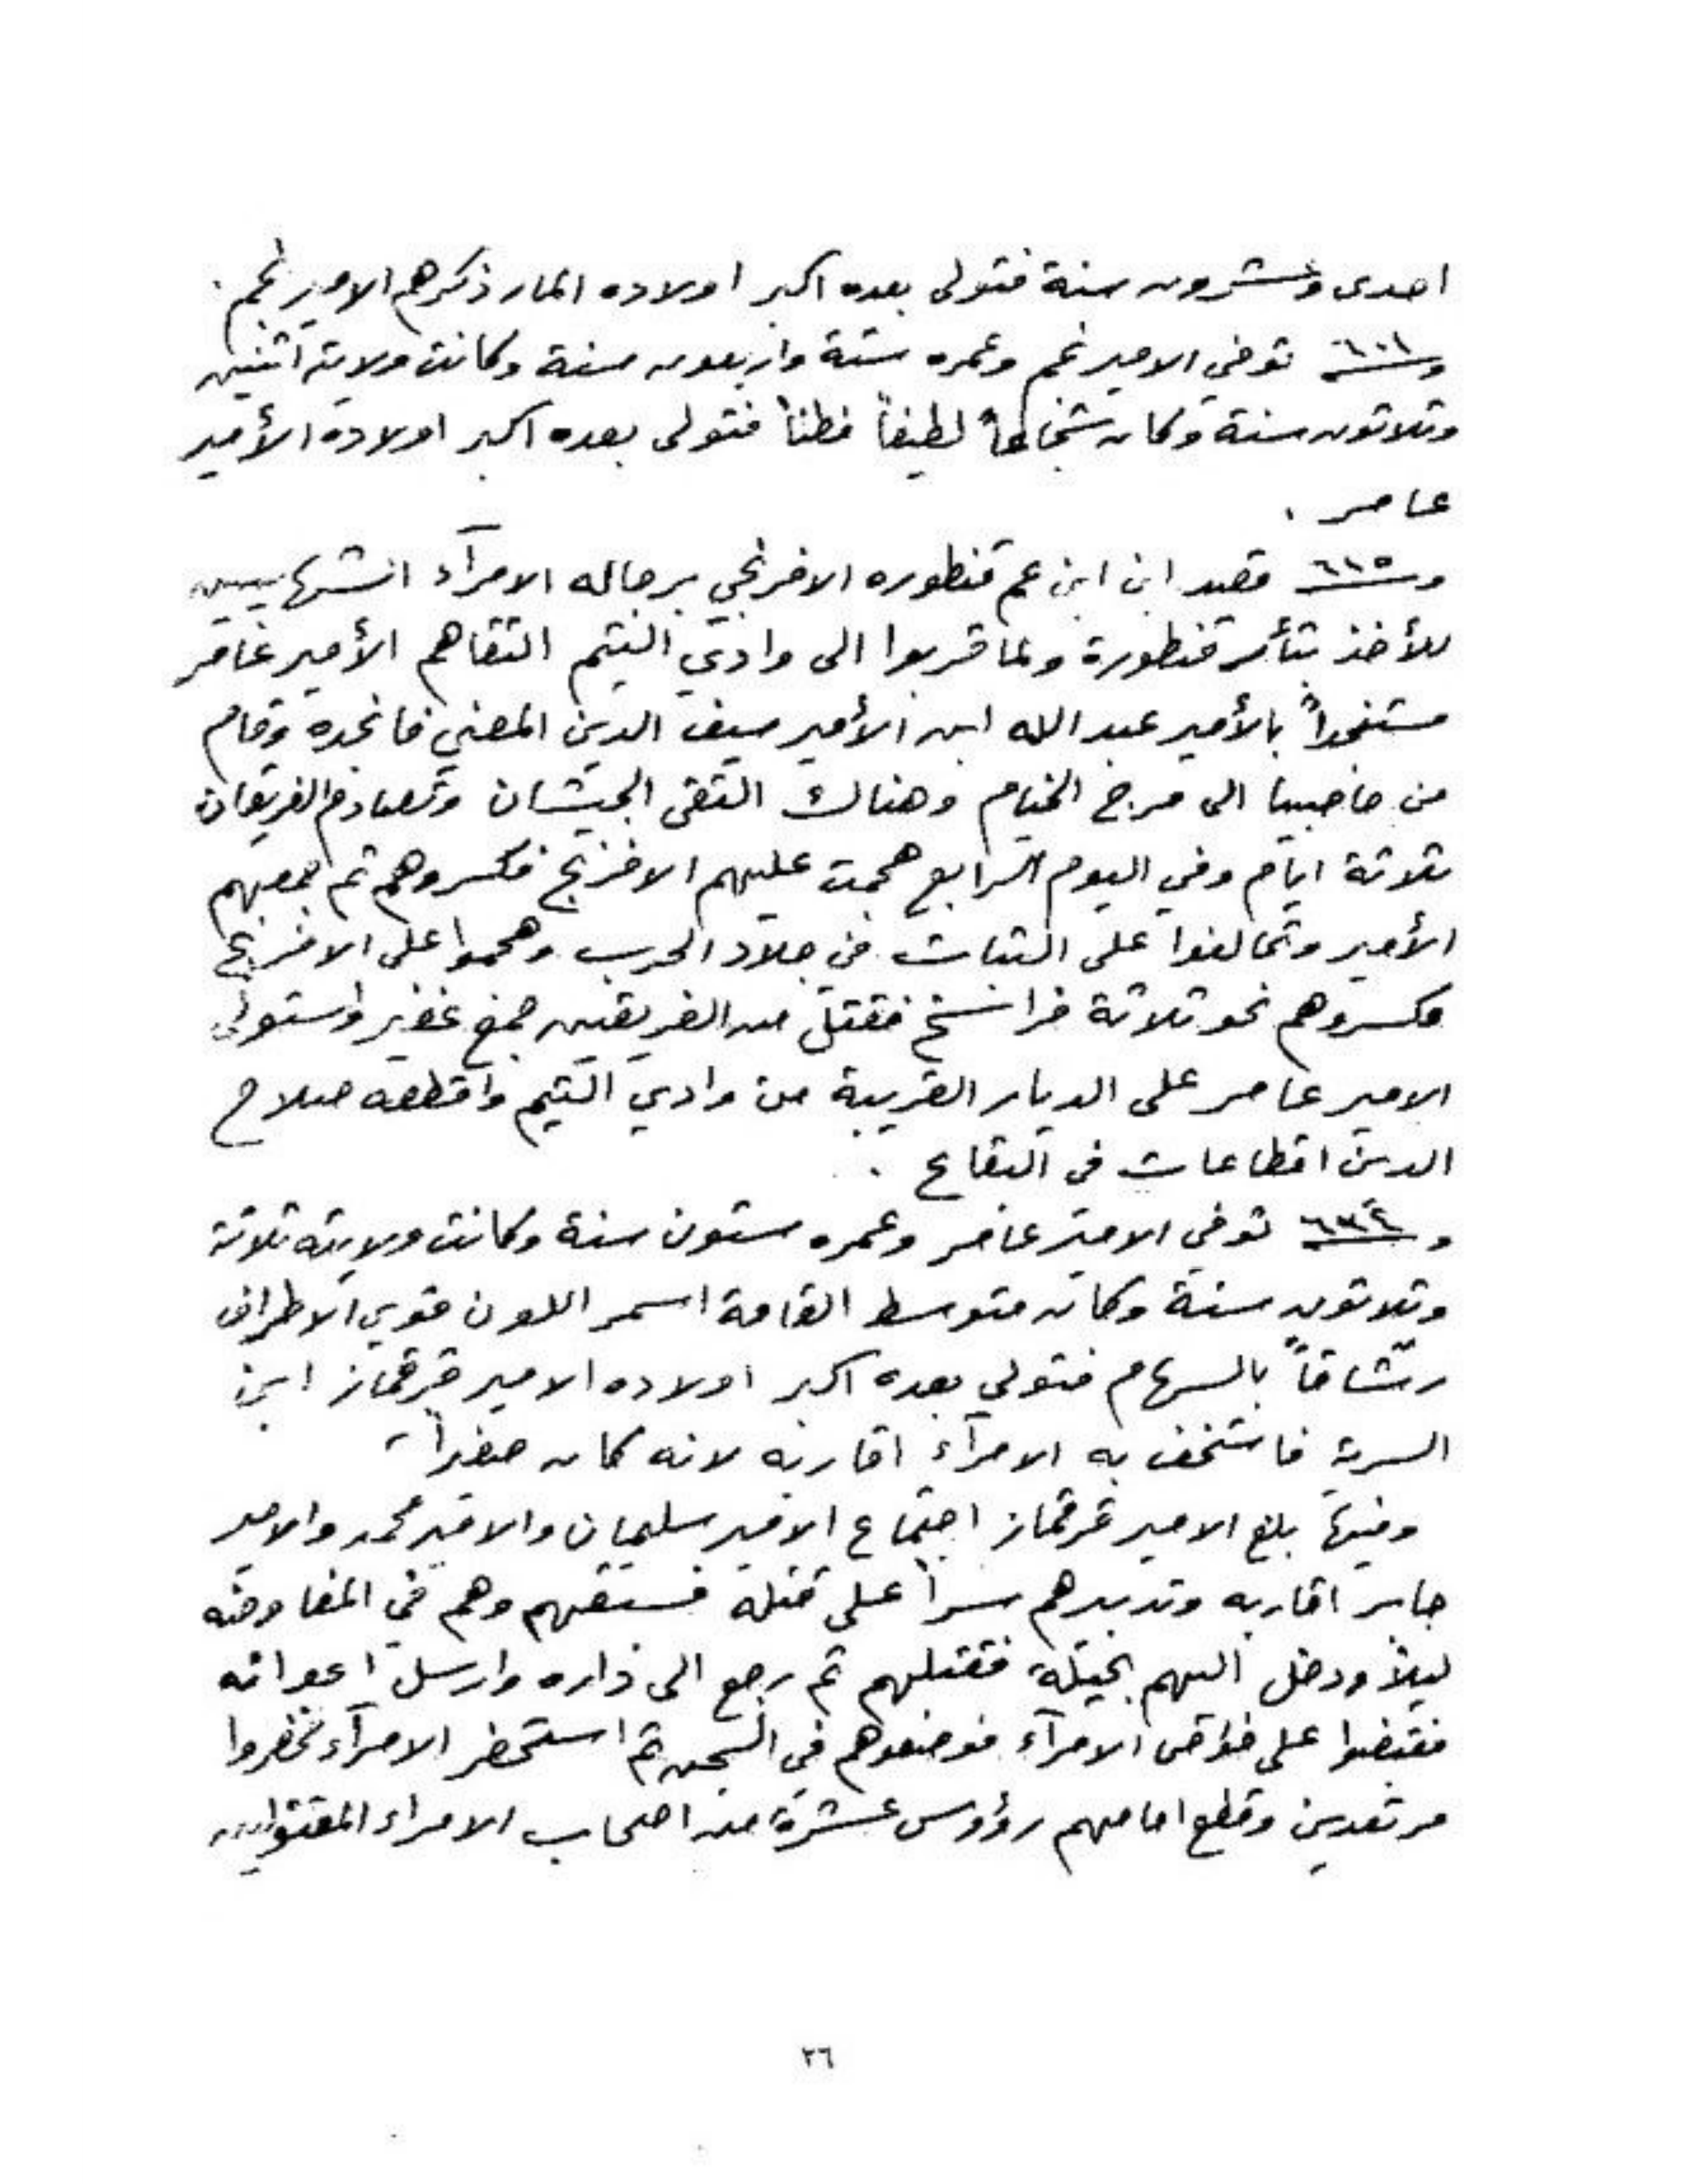 احدى وعشرون سنة فتولى بعده اكبر اولاده المار ذكرهم الامير نجم .
وسنة ٦٠١ توفي الامير نجم وعمره ستة واربعون سنة وكانت ولايته اثنين
وثلاثون سنة وكان شجاعاً لطيفاً فطناً فتولى بعده اكبر اولاده الأمير
عامر .
وسنة ٦١٥ قصد ابن ابن عم قنطوره الافرنجي برجاله الامرآء الشهابيين
للأخذ بتأر قنطورة ولما قربوا الى وادي التيم التقاهم الأمير عامر
مستنجداً بالأمير عبد الله ابن الأمير سيف الدين المعني فانجده وقام
من حاصبيا الى مرج الخيام وهناك التقى الجيشان وتصادم الفريقان
ثلاثة ايام وفي اليوم الرابع هجمت عليهم الافرنج فكسروهم ثم جمعهم
الأمير وتحالفوا على الثبات في جلاد الحرب وهجموا على الافرنج
فكسروهم نحو ثلاثة فراسخ فقتل من الفريقين جمع غفير واستولى
الامير عامر على الديار القريبة من وادي التيم واقطعه صلاح
الدين اقطاعات في البقاع .
وسنة ٦٣٤ توفي الامير عامر وعمره ستون سنة وكانت ولايته ثلاثة
وثلاثون سنة وكان متوسط القامة اسمر اللون قوي الاطراف
رشاقاً بالسهام فتولي بعده اكبر اولاده الامير قرقماز ابن
السرية فاستخف به الامرآء اقاربه لانه كان صغيراً
وفيها بلغ الامير قرقماز اجتماع الامير سليمان والامير محمد والامير
جابر اقاربه وتدبيرهم سراً على قتله فسبقهم وهم في المفاوضه
ليلاً ودخل اليهم بحيلة فقتلهم ثم رجع الى داره وارسل اعوانه
فقبضوا على خواص الامرآء فوضعوهم في السجن ثم استحضر الامرآء فحضروا
مرتعدين وقطع امامهم رؤوس عشرة من اصحاب الامراء المقتولين
٢٦